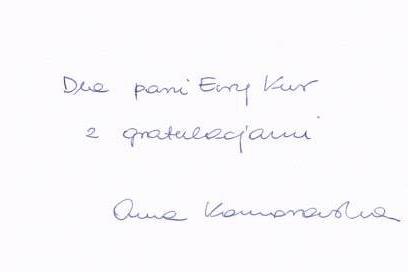 Dla pani Ewy Kur
z gratulacjami
Anna Komorowska